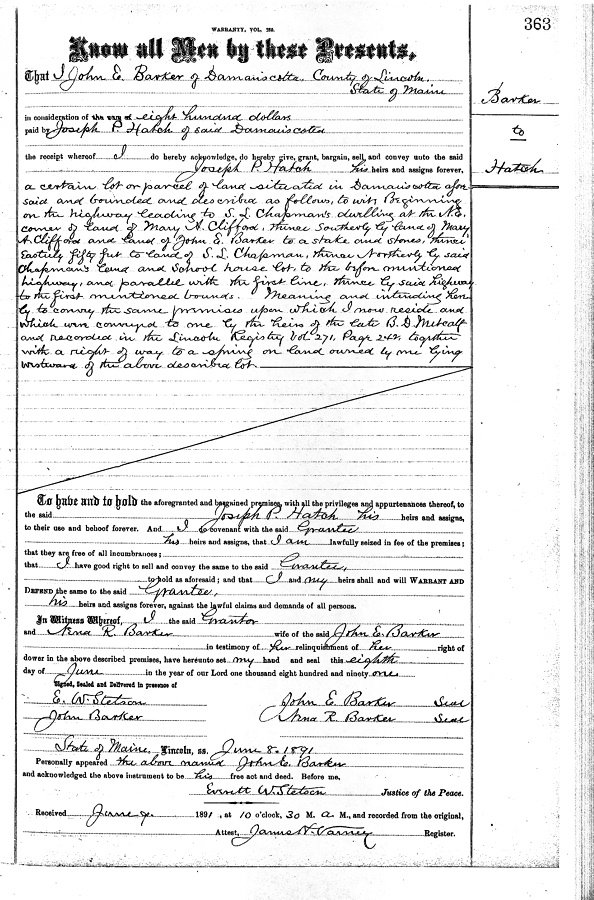 363
WARRANTY, VOL. 280.
Know all Men by these Presents,
That I John E. Barker of Damariscotta County of Lincoln,
State of Maine
Barker
to
Hatch
in consideration of the sum of eight hundred dollars
paid by Joseph P. Hatch of said Damariscotta
the receipt whereof I do hereby acknowledge, do hereby give, grant, bargain, sell, and convey unto the said
Joseph P. Hatch his heirs and assigns forever,
a certain lot or parcel of land situated in Damariscotta afore
said and bounded and described as follows, to wit; Beginning
on the highway leading to S. L. Chapman's dwelling at the N.E.
corner of land of Mary A. Clifford, thence Southerly by land of Mary
A. Clifford and land of John E. Barker to a stake and stones, thence
Easterly fifty feet to land of S. L. Chapman, thence Northerly by said
Chapman's land and School house lot, to the before mentioned
highway, and parallel with the first line, thence by said highway
to the first mentioned bounds. Meaning and intending here
by to convey the same premises upon which I now reside and
which were conveyed to me by the heirs of the late B. D. Metcalf
and recorded in the Lincoln Registry Vol. 271, Page 242, together
with a right of way to a spring on land owned by me lying
westward of the above described lot.
To have and to hold the aforegranted and bargained premises, with all the privileges and appurtenances thereof, to
the said Joseph P. Hatch his heirs and assigns,
to their use and behoof forever. And I do covenant with the said Grantee
his heirs and assigns, that I am lawfully seized in fee of the premises;
that they are free of all incumbrances;
that I have good right to sell and convey the same to the said Grantee,
to hold as aforesaid; and that I and my heirs shall and will WARRANT AND
DEFEND the same to the said Grantee,
his heirs and assigns forever, against the lawful claims and demands of all persons.
In Witness Whereof, I the said Grantor
and Nina R. Barker wife of the said John E. Barker
in testimony of her relinquishment of her right of
dower in the above described premises, have hereunto set my hand and seal this eighth
day of June in the year of our Lord one thousand eight hundred and ninety one
Signed, Sealed and Delivered in presence of
E. W. Stetson John E. Barker Seal
John Barker Nina R. Barker Seal
State of Maine, Lincoln, ss. June 8. 1891
Personally appeared the above named John E. Barker
and acknowledged the above instrument to be his free act and deed. Before me,
Everett W. Stetson Justice of the Peace.
Received June 9. 1891, at 10 o'clock, 30 M. A. M., and recorded from the original,
Attest, James W. Varney Register.